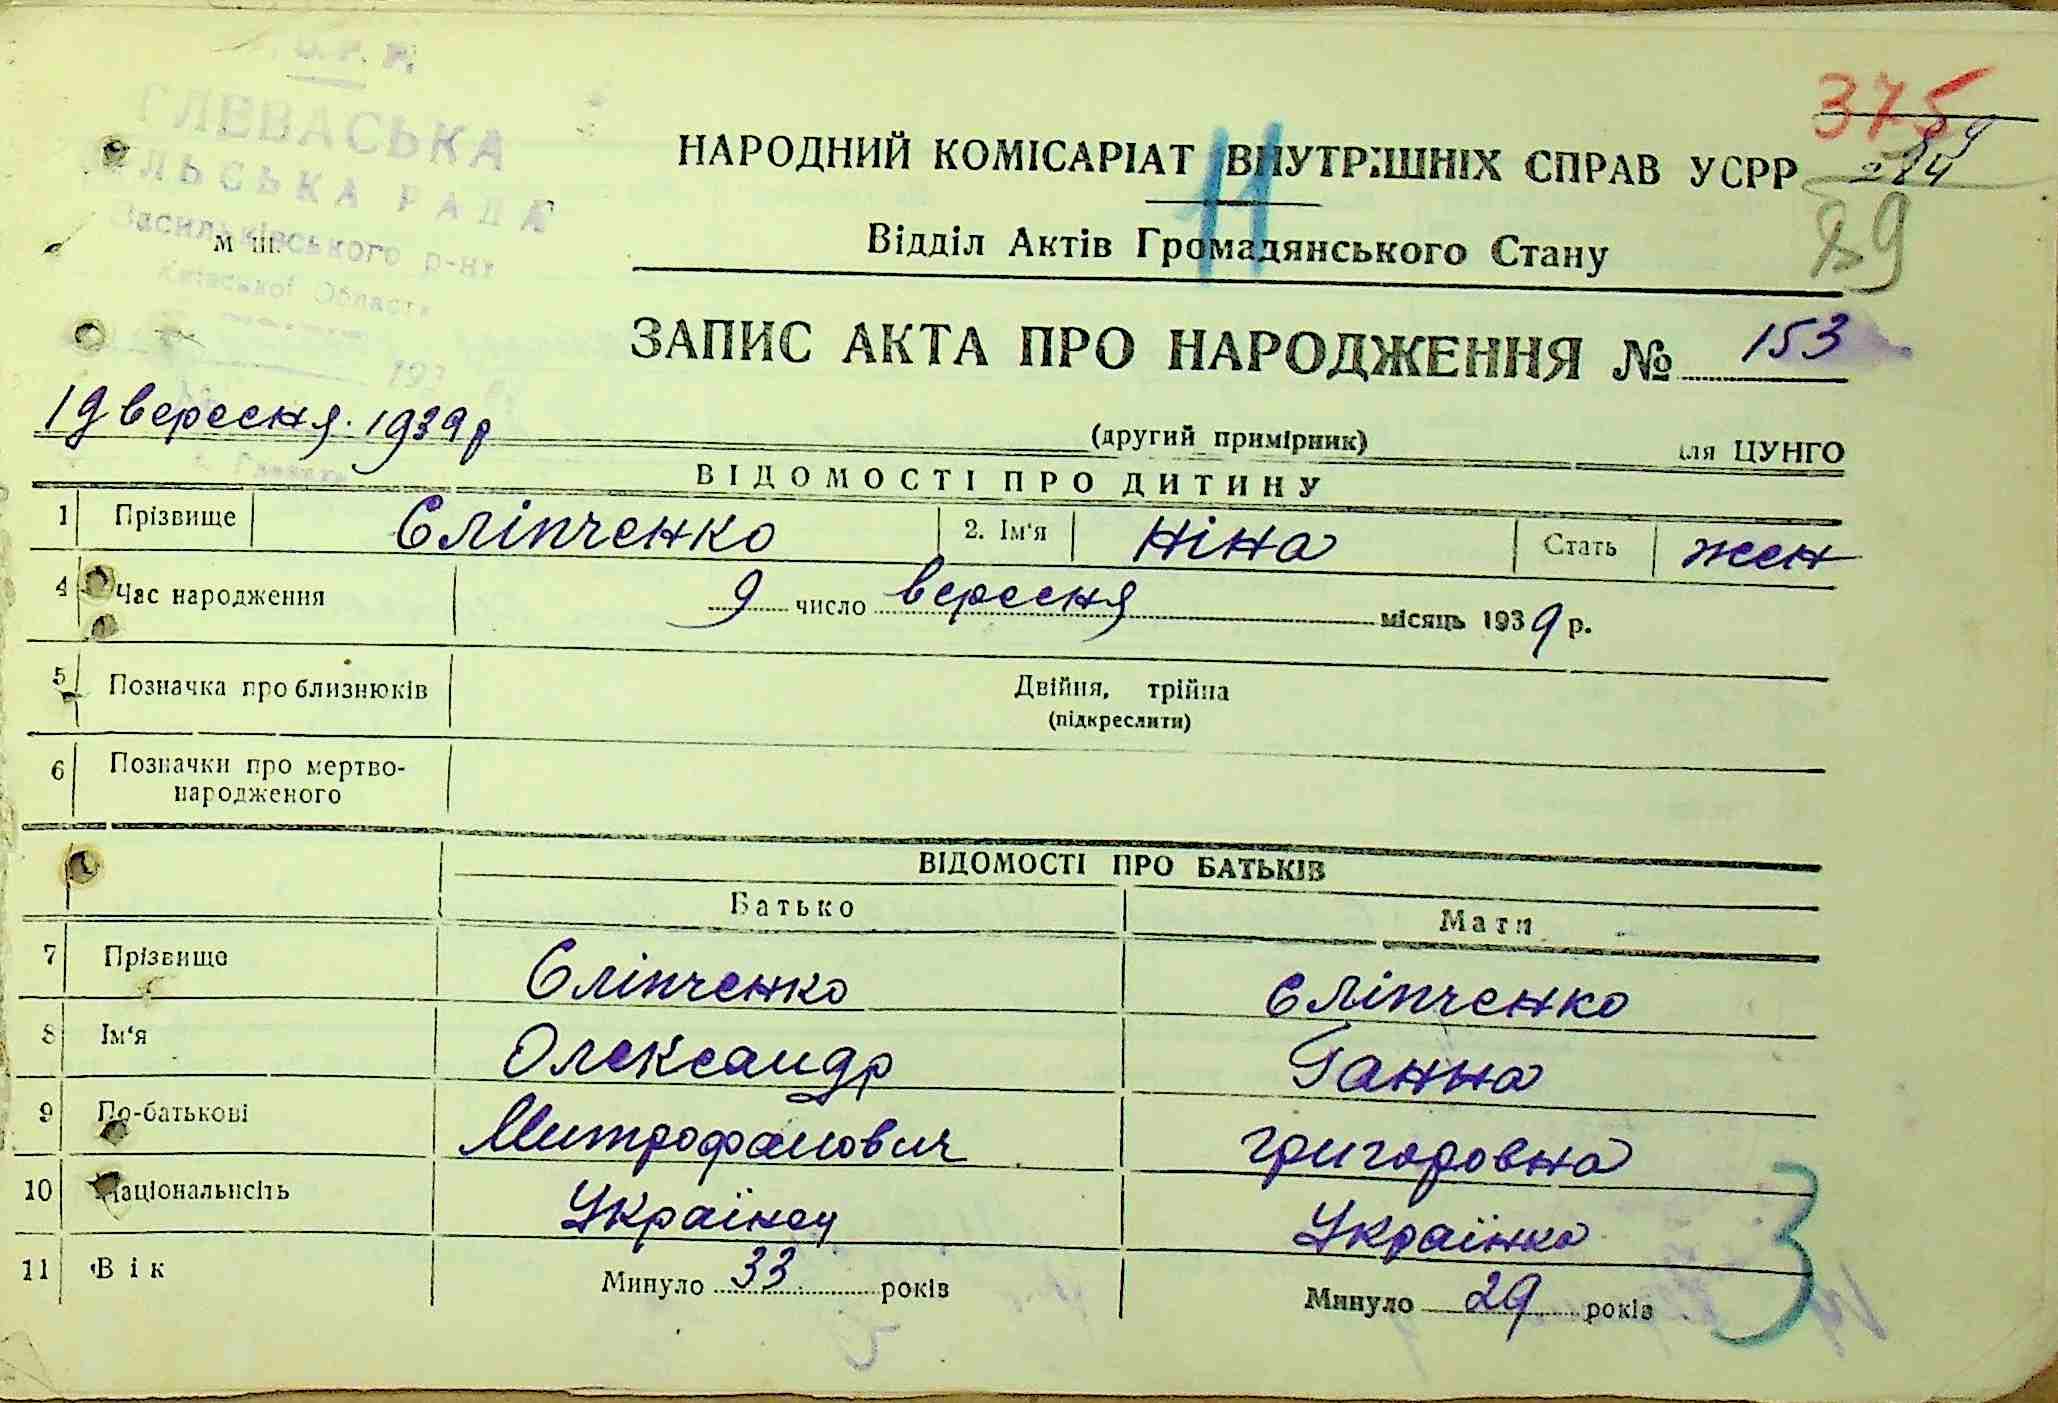 У. С. Р. Р.
ГЛЕВАСЬКА
СІЛЬСЬКА РАДА
Васильківського р-ну
Київської Області
193
м. Ш.
375
89
НАРОДНИЙ КОМІСАРІАТ ВНУТРІШНІХ СПРАВ УСРР
11
Відділ Актів Громадянського Стану
ЗАПИС АКТА ПРО НАРОДЖЕННЯ № 153
19 вересня. 1939 р
(другий примірник) для ЦУНГО
ВІДОМОСТІ ПРО ДИТИНУ
1 Прізвище Єліпченко 2. Ім'я Ніна Стать жен
4 Час народження 9 число вересня місяць 1939 р.
5 Позначка про близнюків Двійня, трійна
(підкреслити)
6 Позначки про мертво-
народженого
ВІДОМОСТІ ПРО БАТЬКІВ
Батько Мати
7 Прізвище Єліпченко Єліпченко
8 Ім'я Олександр Ганна
9 По-батькові Митрофанович Григоровна
10 Національнсіть Українец Українка
11 Вік Минуло 33 років Минуло 29 років
3